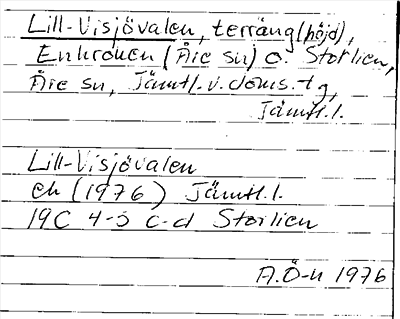 Lill-Visjövalen, terräng (höjd),
Enkronen (Åre sn) o. Storlien,
Åre sn, Jämtl. v. doms. tg,
Jämtl. l.
Lill-Visjövalen
ek (1976) Jämtl. l.
19C 4-5 c-d Storlien
A.Ö-n 1976